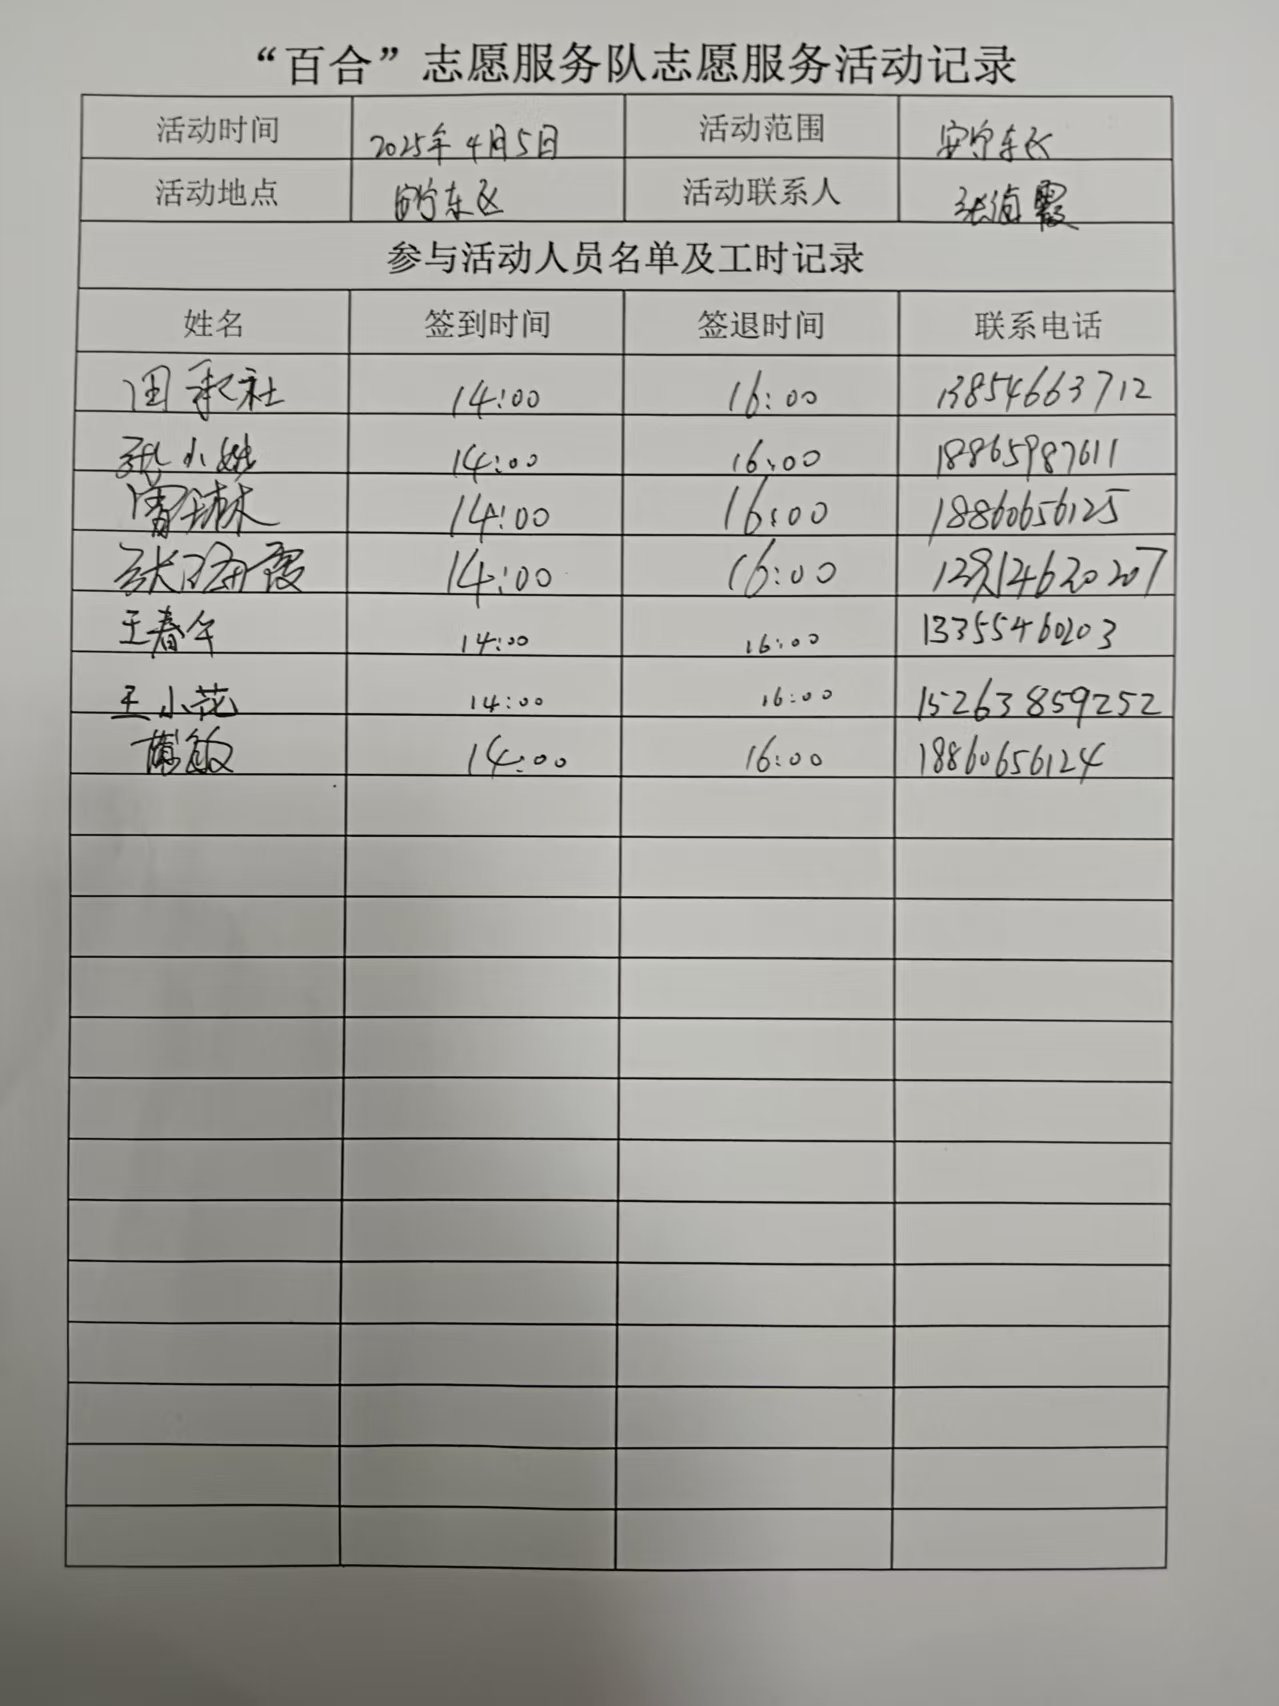 “百合”志愿服务队志愿服务活动记录
活动时间 2025年4月5日 活动范围 安宁东区
活动地点 安宁东区 活动联系人 张海霞
参与活动人员名单及工时记录
姓名 签到时间 签退时间 联系电话
田承社 14:00 16:00 13854663712
张小姓 14:00 16:00 18865987611
14:00 16:00 18860656125
张海霞 14:00 16:00
王春午 14:00 16:00 13355460203
王小花 14:00 16:00 152638859252
14:00 16:00 18860656124